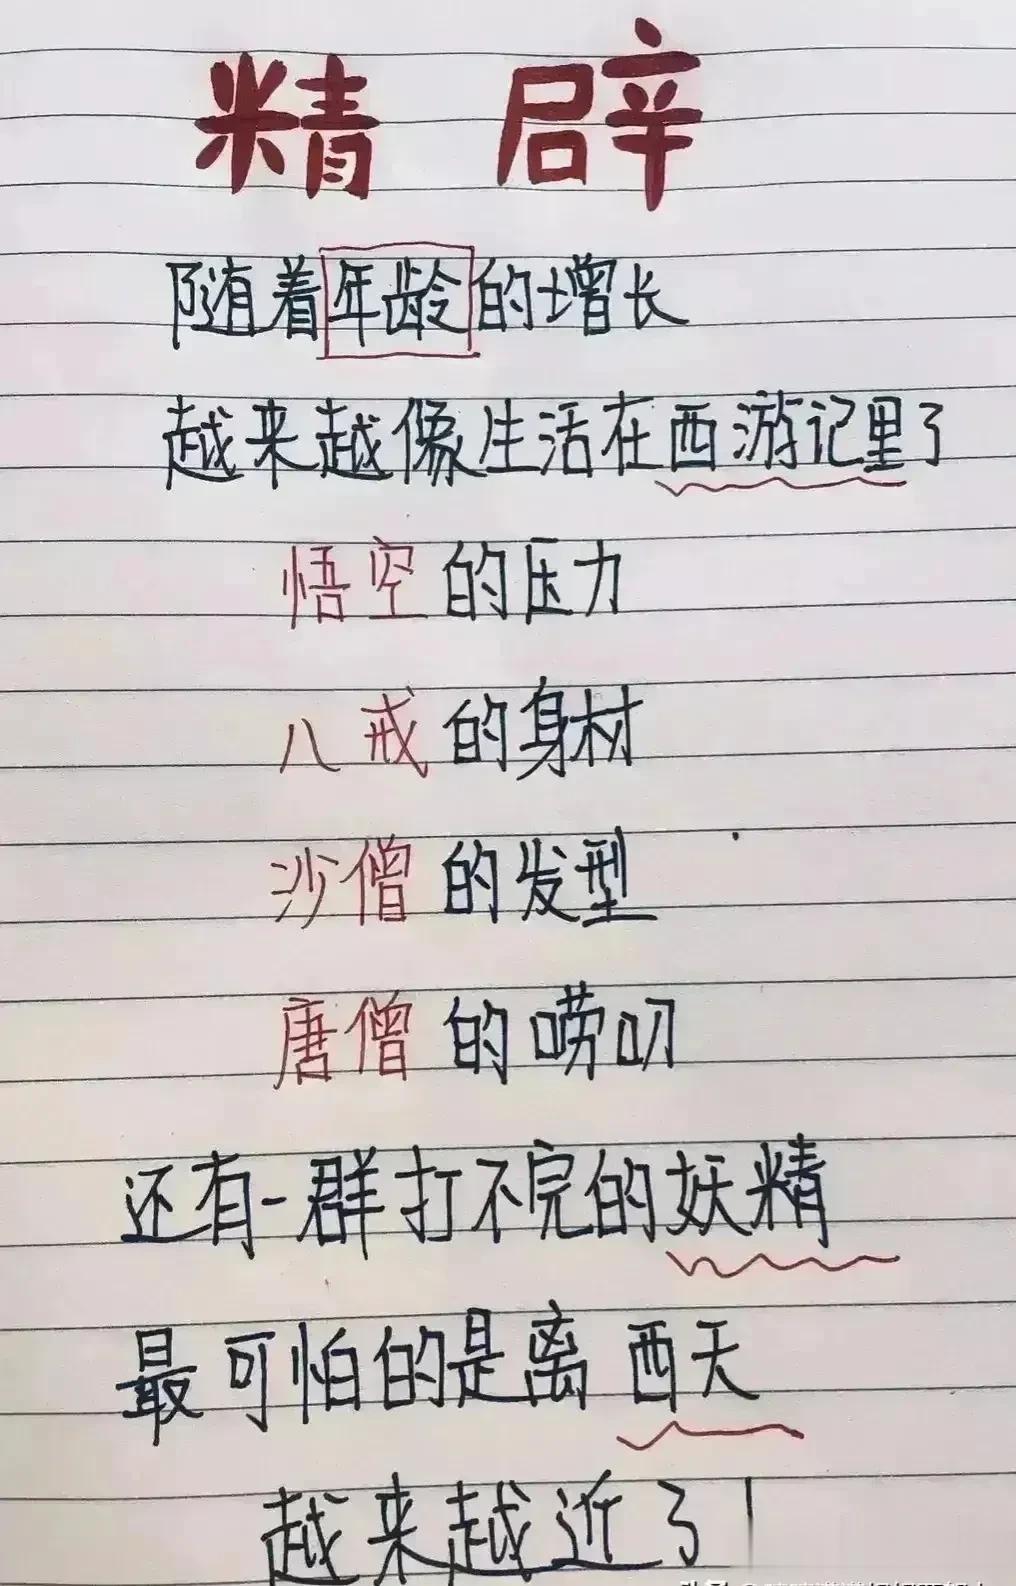 精辟
随着年龄的增长
越来越像生活在西游记里了
悟空的压力
八戒的身材
沙僧的发型
唐僧的唠叨
还有一群打不完的妖精
最可怕的是离西天
越来越近了!